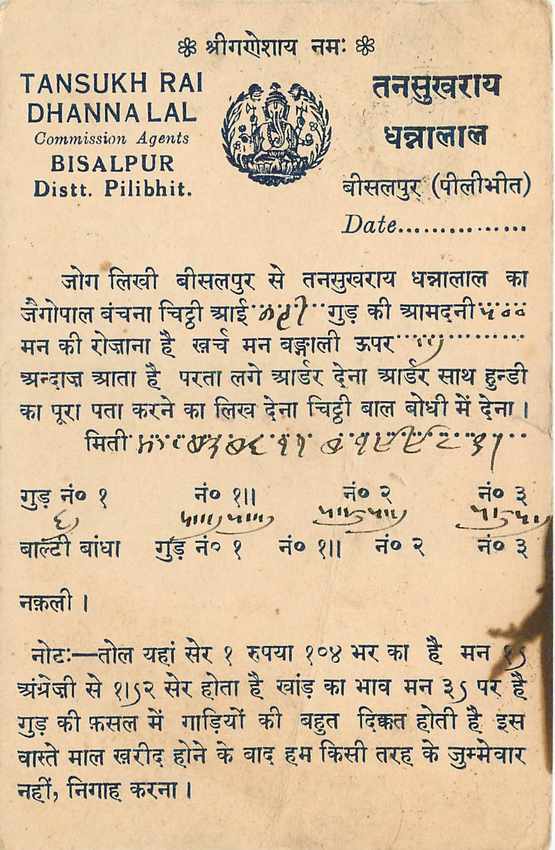 श्रीगणेशाय नमः
TANSUKH RAI
DHANNA LAL
Commission Agents
BISALPUR
Distt. Pilibhit.
तनसुखराय
धन्नालाल
बीसलपुर (पीलीभीत)
Date...............
जोग लिखी बीसलपुर से तनसुखराय धन्नालाल का
जैगोपाल बंचना चिट्ठी आई गुड़ की आमदनी ५००
मन की रोजाना है खर्च मन बङ्गाली ऊपर
अन्दाज आता है परता लगे आर्डर देना आर्डर साथ हुन्डी
का पूरा पता करने का लिख देना चिट्ठी बाल बोधी में देना।
मिती
गुड़ नं० १ नं० १॥ नं० २ नं० ३
बाल्टी बांधा गुड़ नं० १ नं० १॥ नं० २ नं० ३
नक़ली।
नोटः—तोल यहां सेर १ रुपया १०४ भर का है मन १ऽ
अंग्रेजी से १।ऽ२ सेर होता है खांड़ का भाव मन ३ऽ पर है
गुड़ की फ़सल में गाड़ियों की बहुत दिक्कत होती है इस
वास्ते माल खरीद होने के बाद हम किसी तरह के जुम्मेवार
नहीं, निगाह करना।